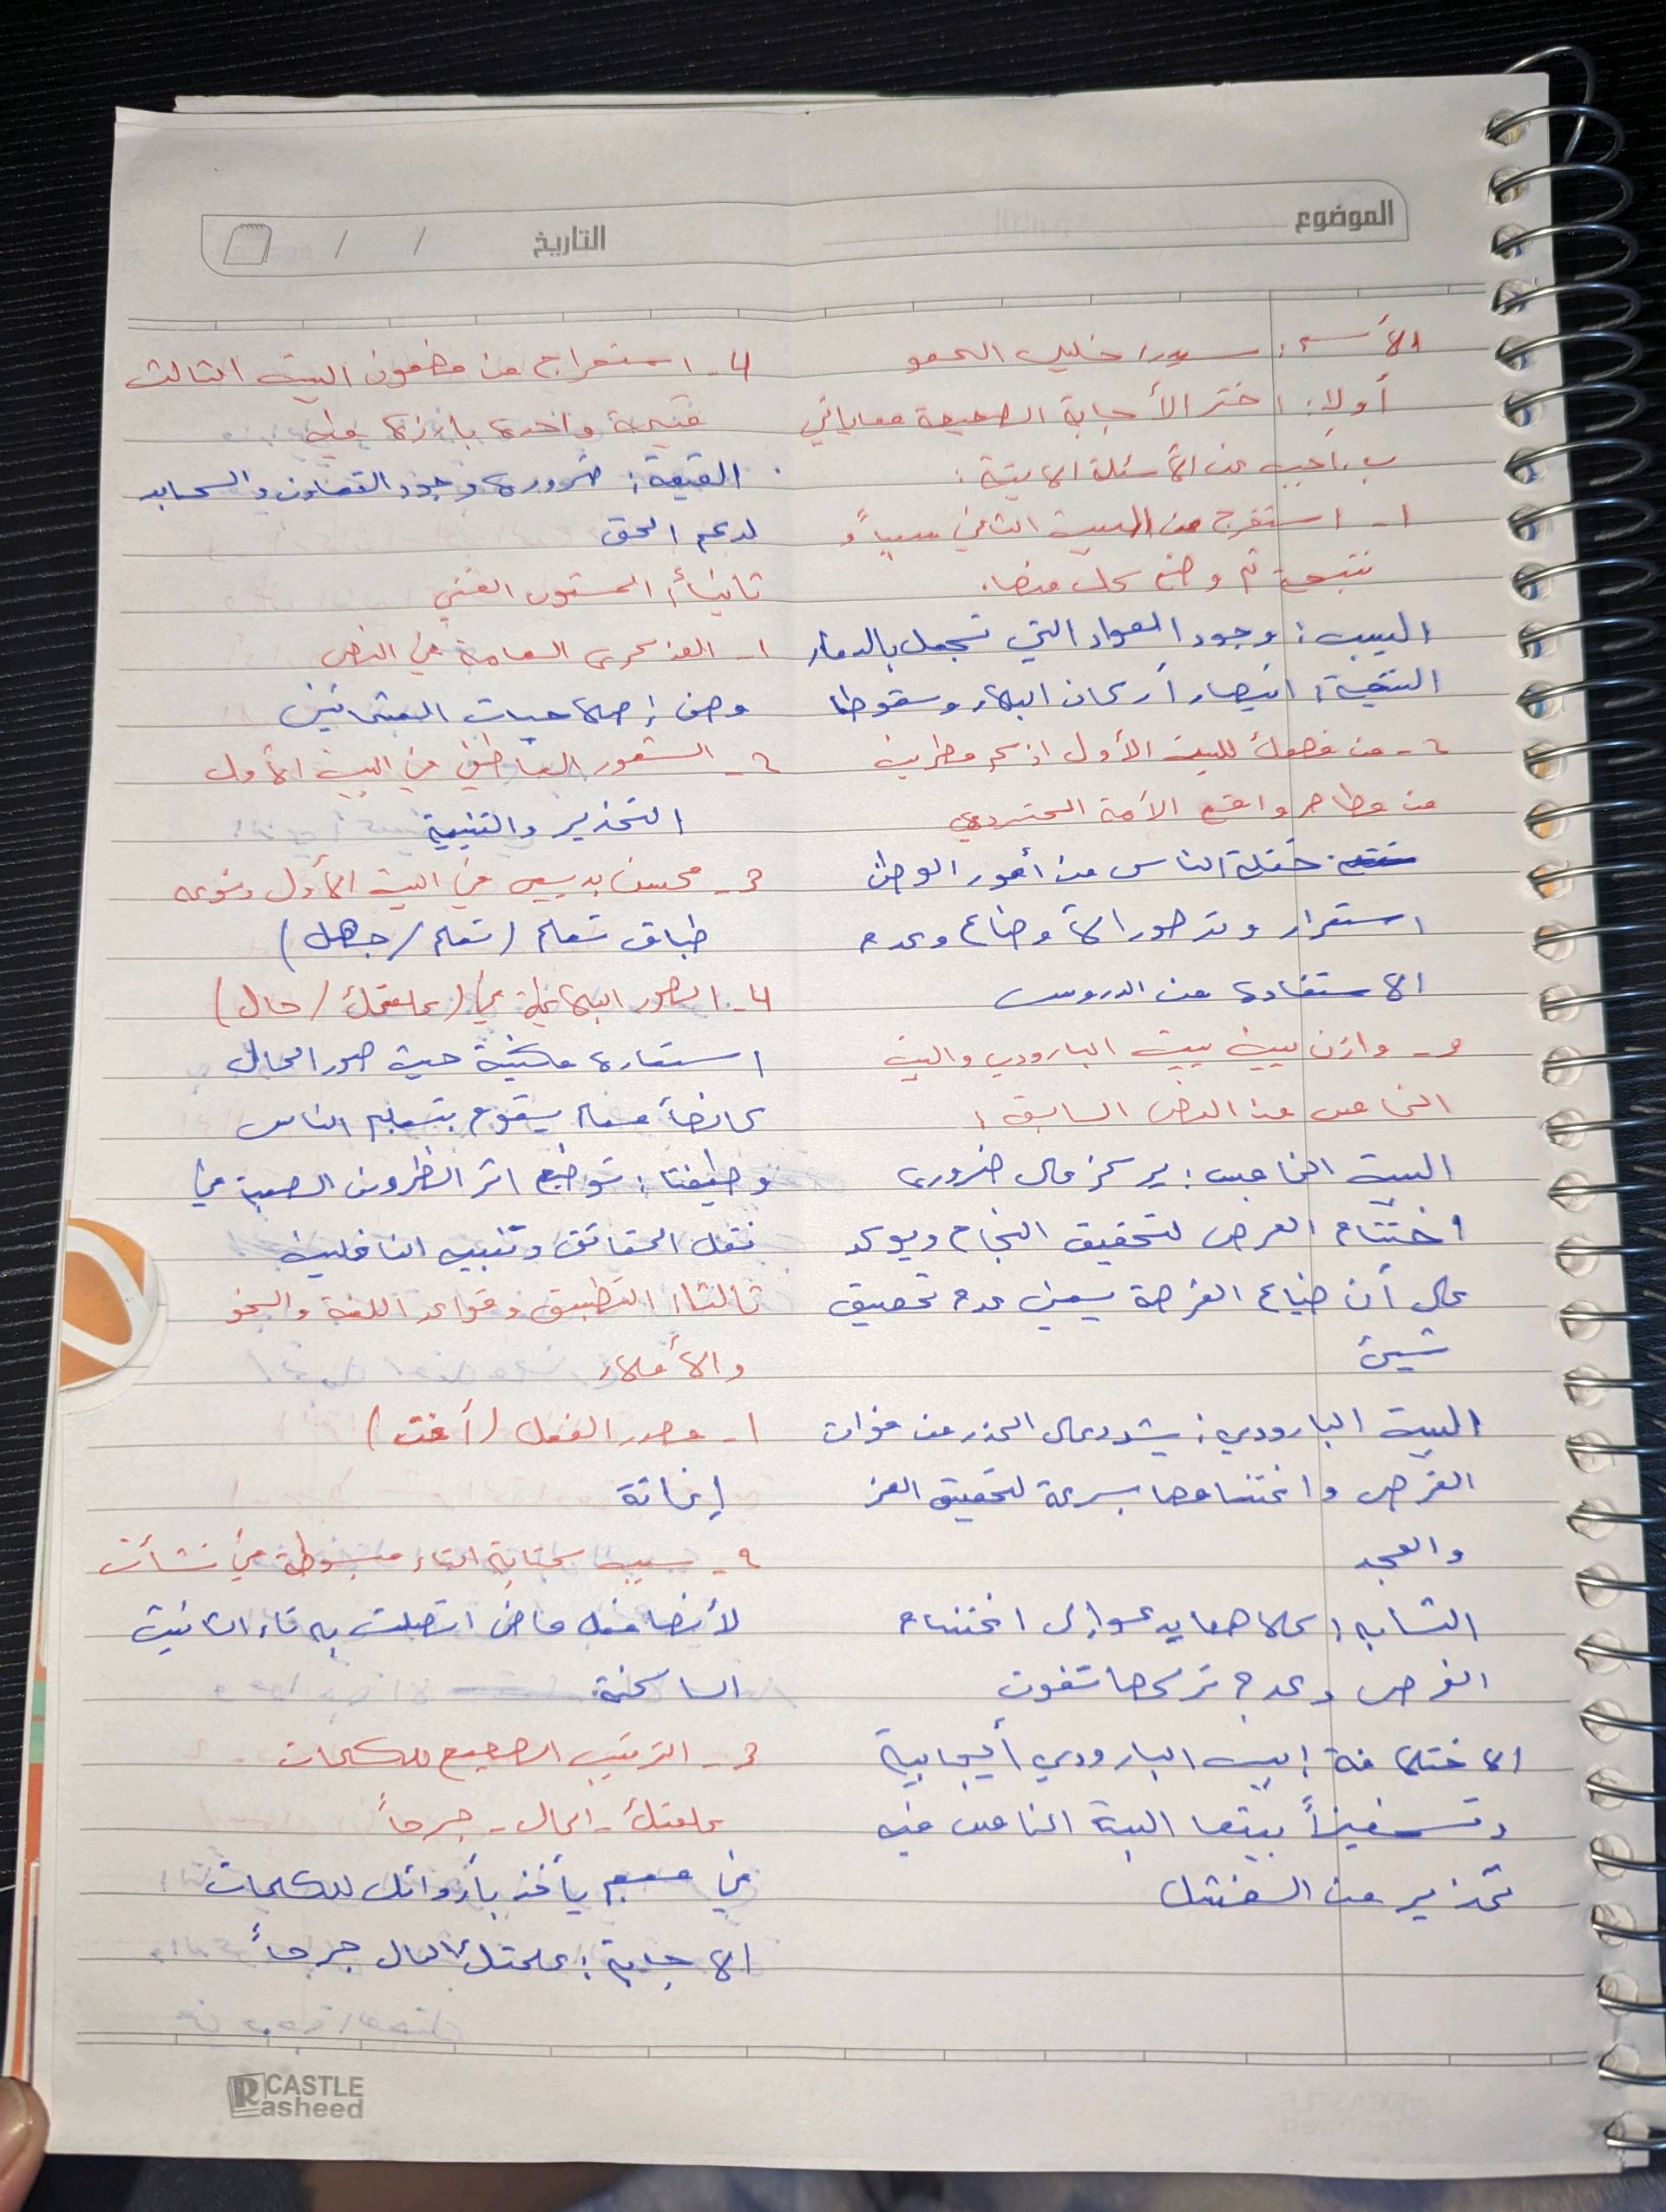 الموضوع
التاريخ / /
الأسم: سيدرا خليل الحمو
أولا: اختر الأجابة الصحيحة مما يأتي
ب. أجب عن الأسئلة الاتية:
1- استخرج من البيت الثاني سبباً و
نتيجة ثم وضح كل منها.
السبب: وجود المواد التي تجعل بالدمار
النتيجة: انهيار أركان البلاد وسقوطها
2- من فهمك للبيت الأول اذكر مظهرين
من مظاهر واقع الأمة المتردي
غفلة الناس عن أمور الوطن
استمرار وتدهور الأوضاع وعدم
الاستفادة من الدروس
3- وازن بين بيت البارودي والبيت
الخامس من النص السابق:
البيت الخامس: يركز على ضرورة
اغتنام الفرص لتحقيق النجاح ويؤكد
على أن ضياع الفرصة يعني عدم تحقيق
شيئ
البيت البارودي: يشدد على الحذر من فوات
الفرص واغتنامها بسرعة لتحقيق العز
والمجد
التشابه: كلاهما يدعو إلى اغتنام
الفرص وعدم تركها تفوت
الاختلافة: بيت البارودي أيجابية
وتحفيزاً بينما البيت الخامس فيه
تحذير من الفشل
4- استخراج من مضمون البيت الثالث
قيمة واحدة بارزة فيه
القيمة: ضرورة وجود التعاون و
لدعم الحق
ثانياً: المستوى الفني
1- الفكرى العامة في النص
وصف إصلاحيات العثمانين
2- الشعور العاطفي في البيت الأول
التحذير والتنبية
3- محسن بديعي في البيت الأول ونوعه
طباق تعلم (تعلم/جهل)
4- الصور البيانية في (علمتك/حال)
استعارة مكنية حيث صور الحال
كانها معلم يقوم بتعليم الناس
وظيفتا: توضيح اثر الظروف الصعبة في
نقل الحقائق وتنبيه الغافلين
ثالثا: التطبيق وقواعد اللغة والنحو
والأملاء
1- مصدر الفعل (أغث)
إغاثة
2- سبب كتابة التاء مبسوطة في نشأت
لأنها فعل ماض اتصلت به تاء التانيث
الساكنة
3- الترتيب الصحيح للكلمات
علمتك - الحال - جرحاً
في معجم يأخذ بأروائل للكلمات
الاجابة: علمتك الحال جرحاً
CASTLE
Rasheed